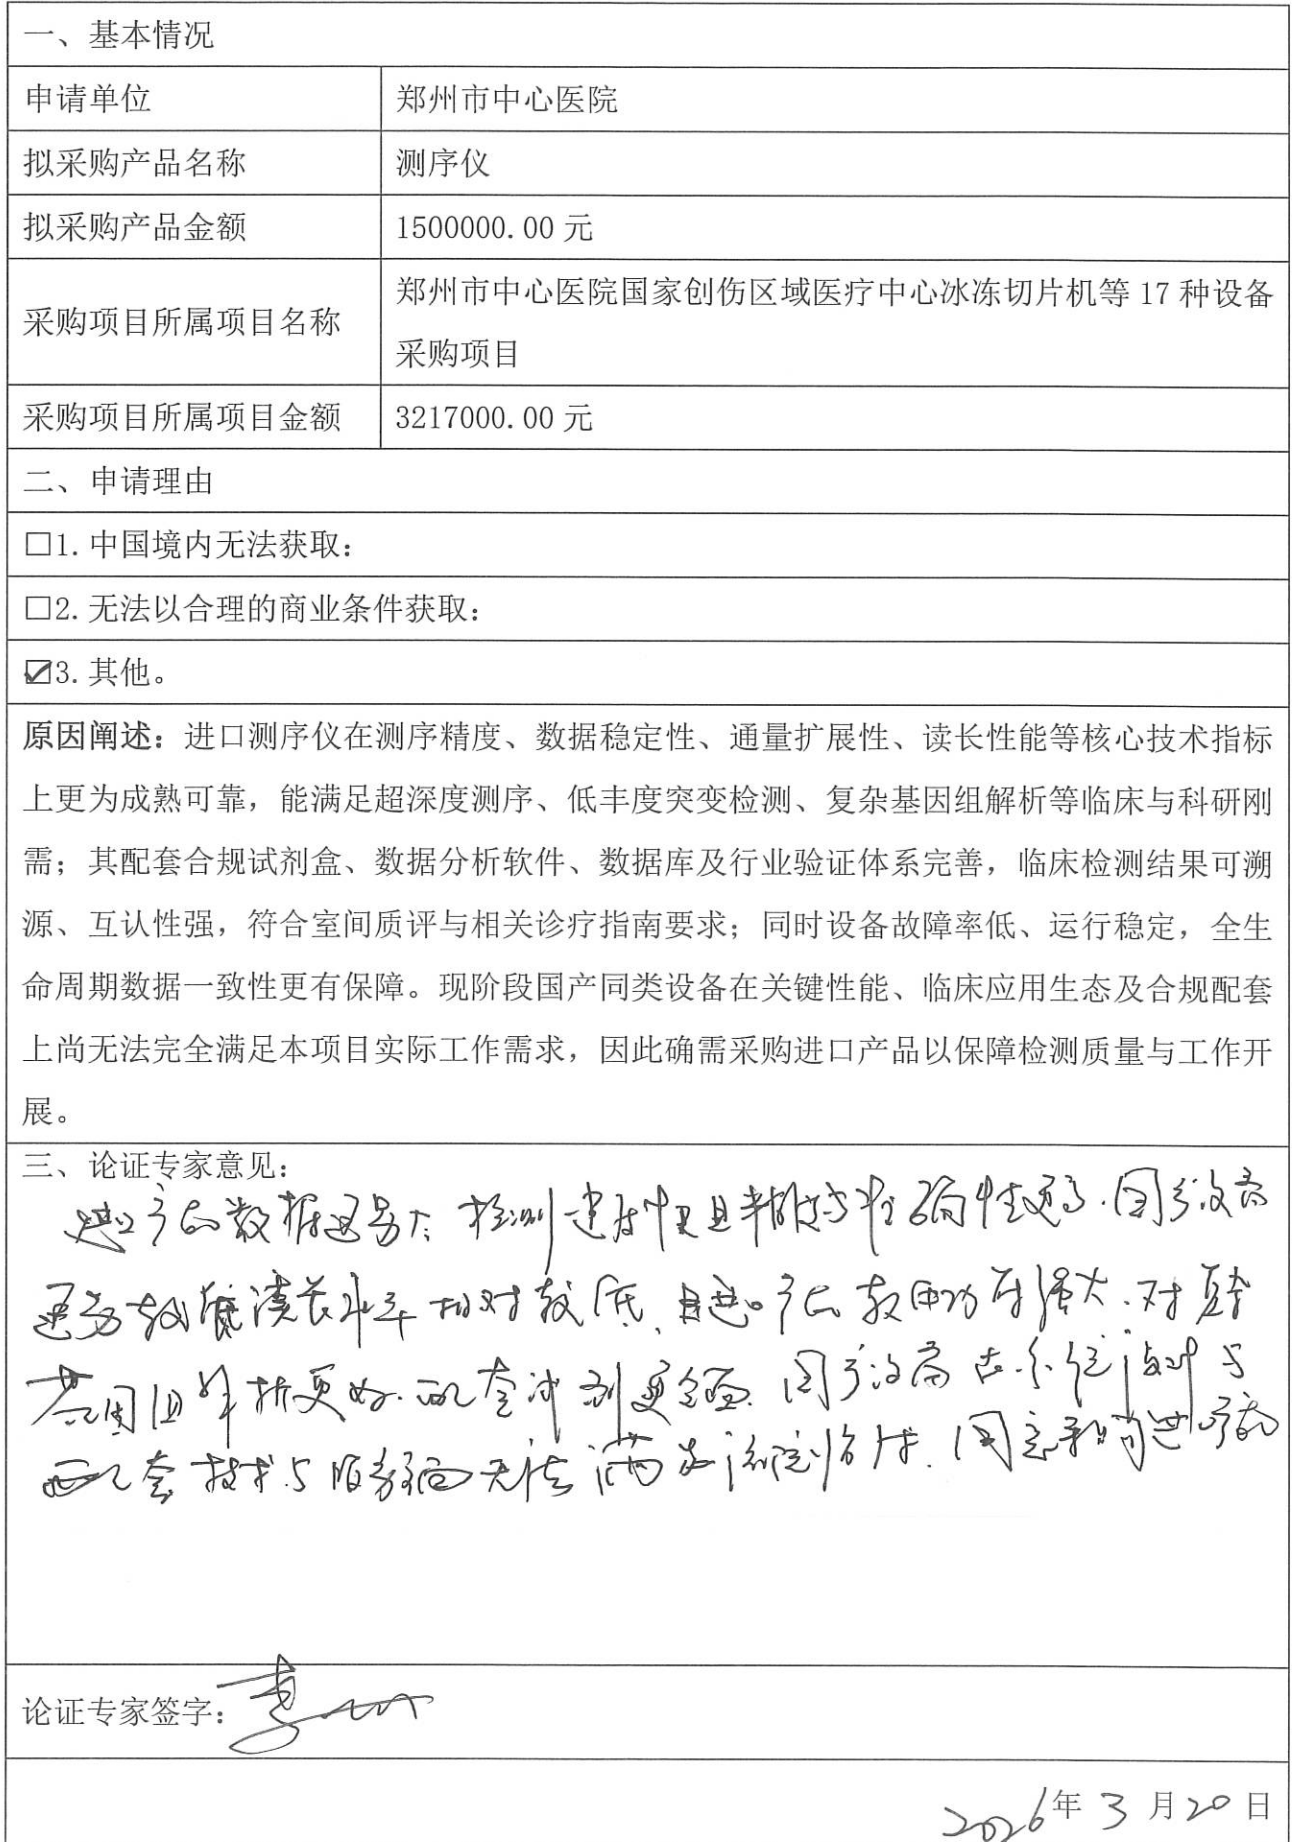 一、基本情况
申请单位 郑州市中心医院
拟采购产品名称 测序仪
拟采购产品金额 1500000.00 元
采购项目所属项目名称 郑州市中心医院国家创伤区域医疗中心冰冻切片机等 17 种设备
采购项目
采购项目所属项目金额 3217000.00 元
二、申请理由
□1.中国境内无法获取：
□2.无法以合理的商业条件获取：
☑3.其他。
原因阐述：进口测序仪在测序精度、数据稳定性、通量扩展性、读长性能等核心技术指标
上更为成熟可靠，能满足超深度测序、低丰度突变检测、复杂基因组解析等临床与科研刚
需；其配套合规试剂盒、数据分析软件、数据库及行业验证体系完善，临床检测结果可溯
源、互认性强，符合室间质评与相关诊疗指南要求；同时设备故障率低、运行稳定，全生
命周期数据一致性更有保障。现阶段国产同类设备在关键性能、临床应用生态及合规配套
上尚无法完全满足本项目实际工作需求，因此确需采购进口产品以保障检测质量与工作开
展。
三、论证专家意见：
进口产品数据通量大、检测速度快且精度与准确性更高，国产设备
通量较低读长水平相对较低，且进口产品软件功能强大，对复杂
基因组解析更好，配套试剂更全面，国产设备在
配套技术与服务方面无法满足该院临床，同意采购进口产品
论证专家签字：李
2026年 3 月 20 日